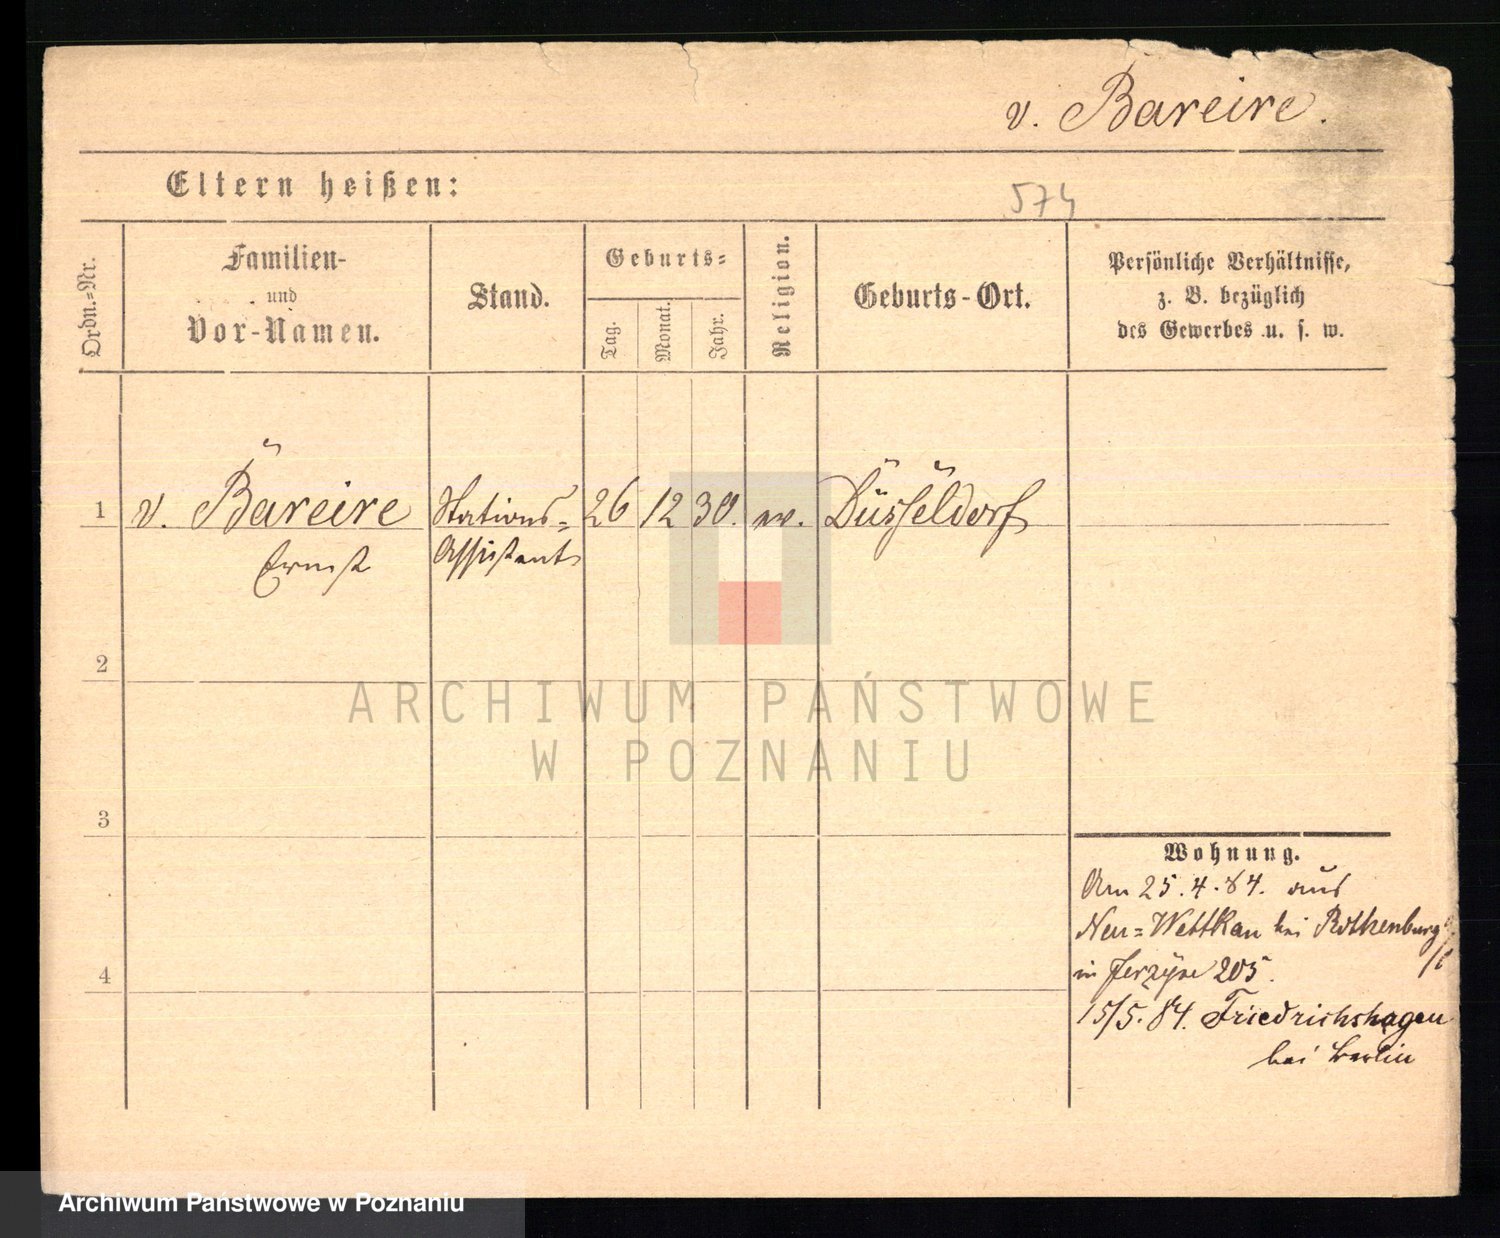 v. Bareire.
Eltern heißen:
574
Ordn.=Nr.
Familien-
und
Vor-Namen.
Stand.
Geburts=
Tag.
Monat.
Jahr.
Religion.
Geburts-Ort.
Persönliche Verhältnisse,
z. B. bezüglich
des Gewerbes u. s. w.
1 v. Bareire Stations= 26 12 30. ev. Düsseldorf
Ernst Assistent
2
3
4
Wohnung.
Am 25.4.84. aus
Neu= bei Rothenburg
in Jerzyce 205.
15/5.84. Friedrichshagen
bei Berlin
ARCHIWUM PAŃSTWOWE
W POZNANIU
Archiwum Państwowe w Poznaniu